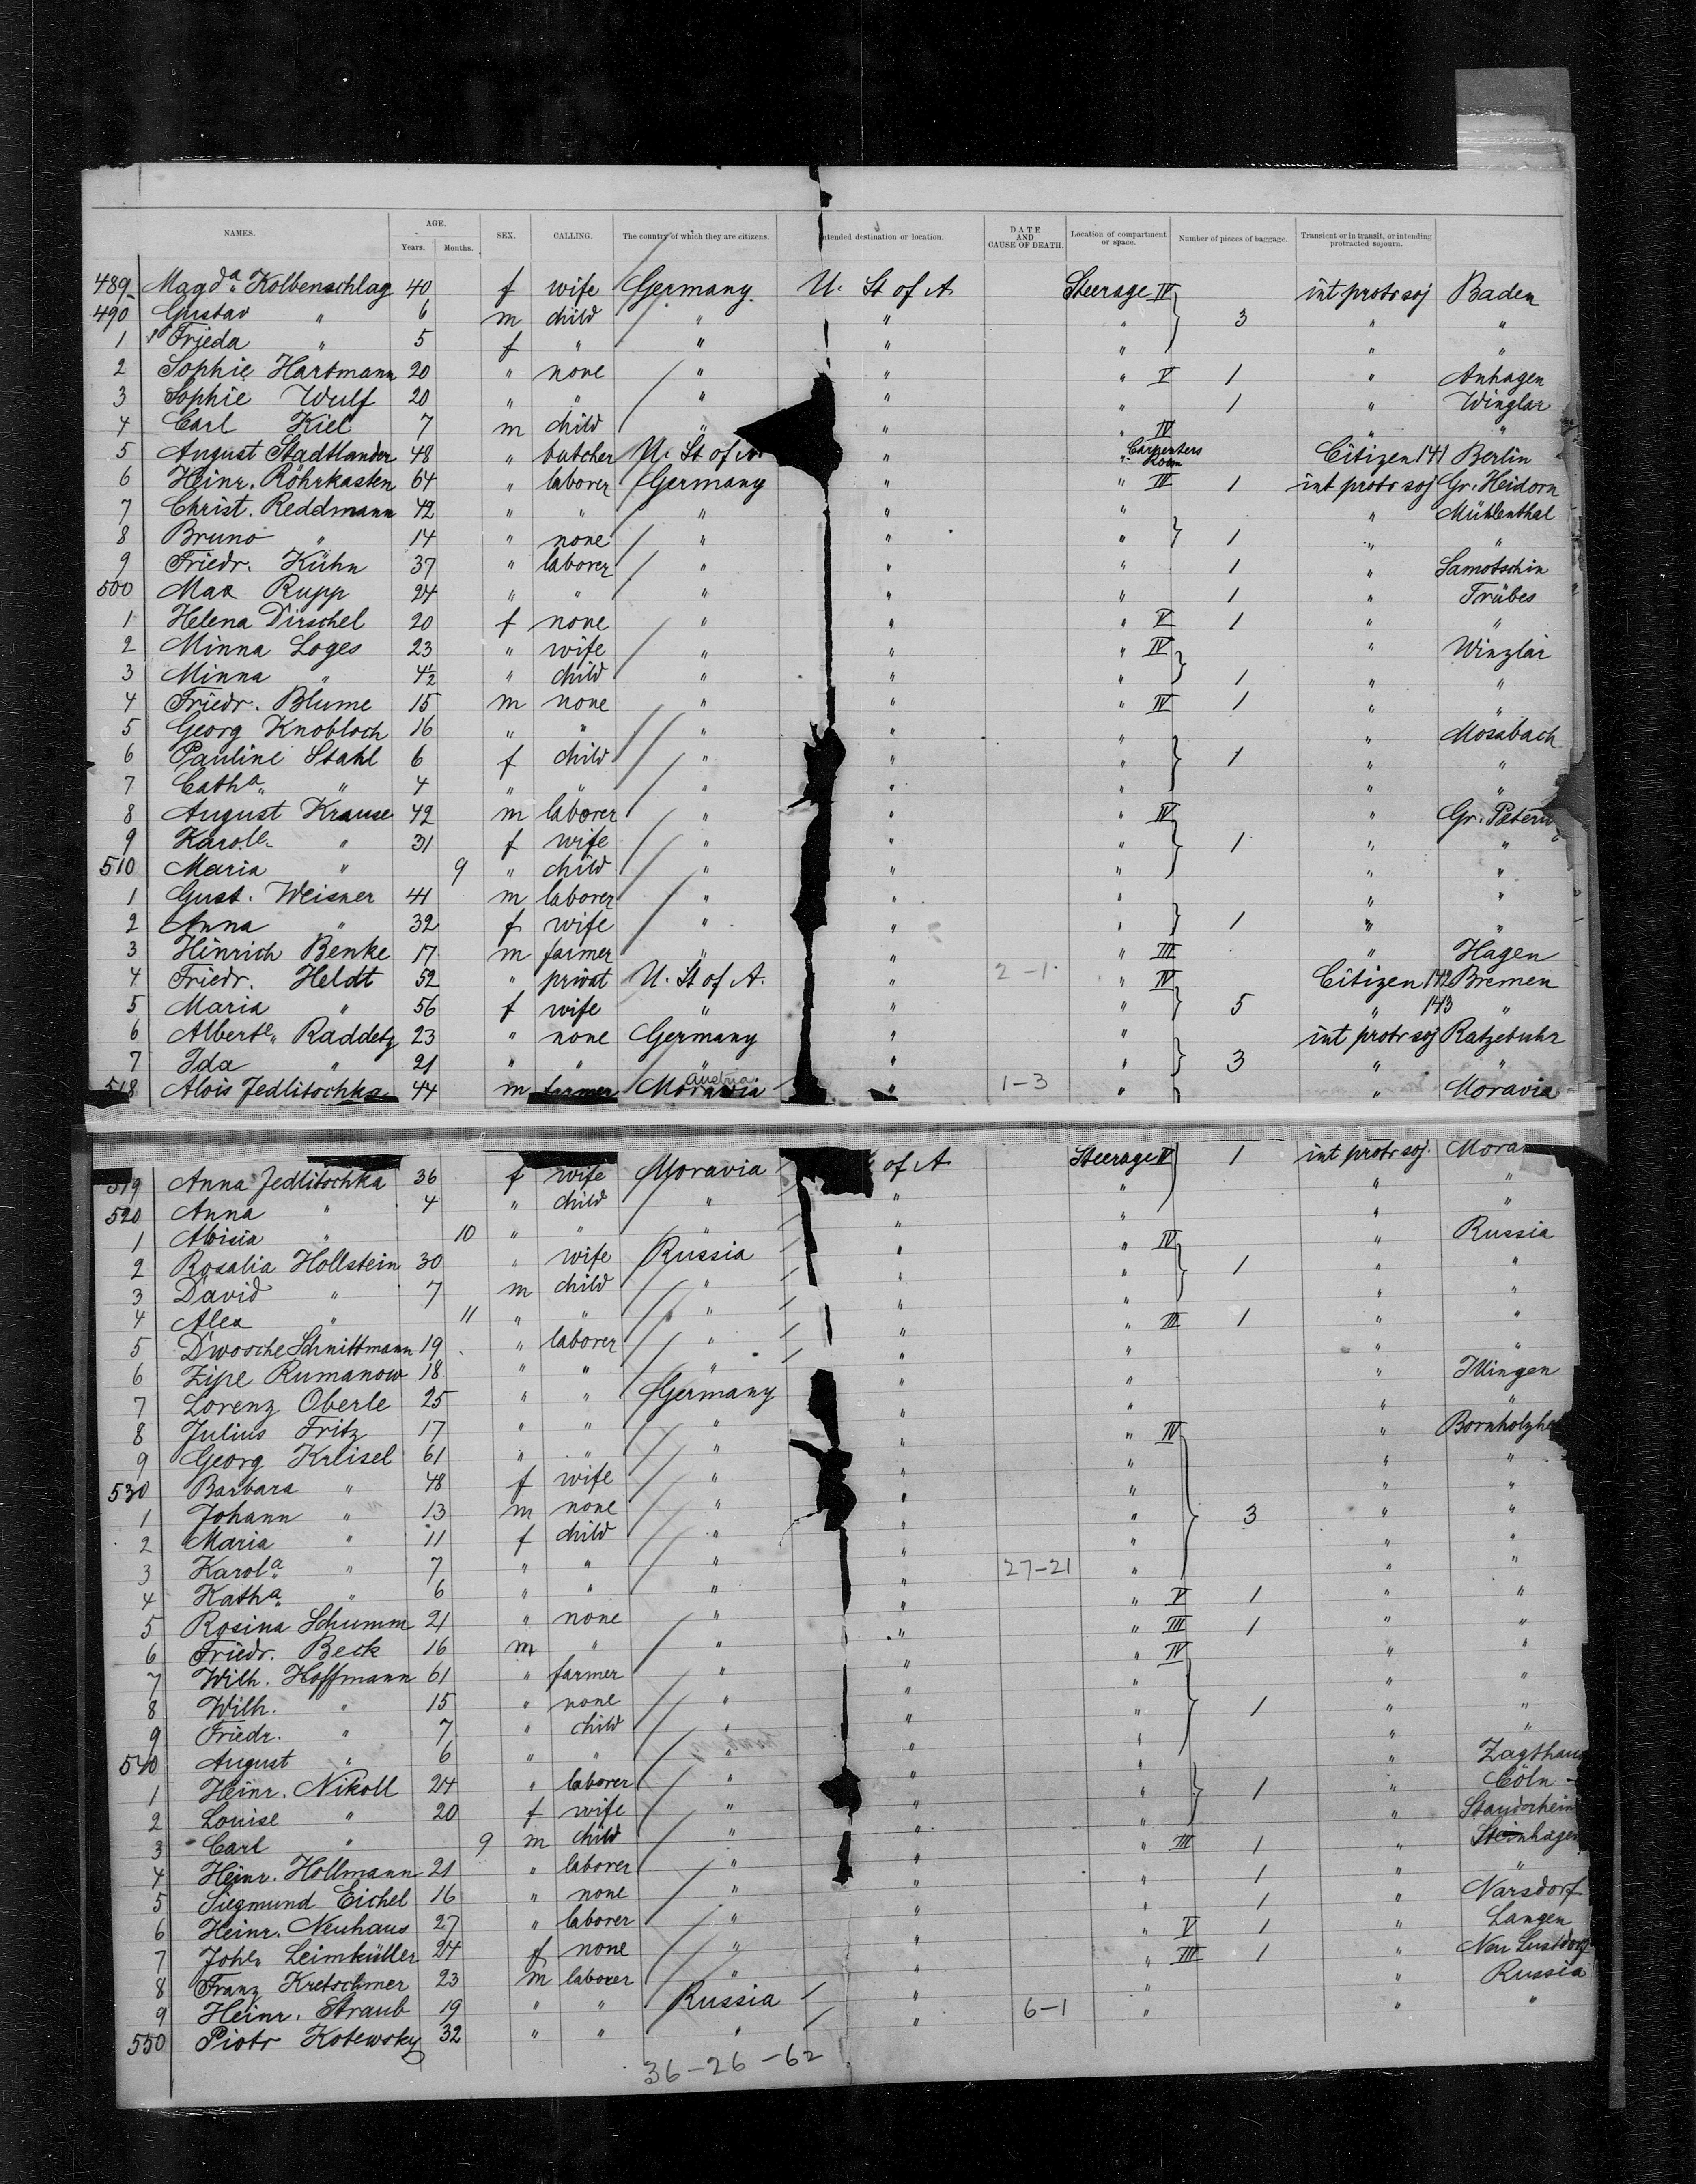 NAMES. AGE. Years. Months. SEX. CALLING. The country of which they are citizens. Intended destination or location. DATE AND CAUSE OF DEATH. Location of compartment or space. Number of pieces of baggage. Transient or in transit, or intending protracted sojourn.
489 Magda Kolbenschlag 40 f wife Germany U. St of A. Steerage IV int protr soj Baden
490 Gustav " 6 m child " " " 3 " "
1 Frieda " 5 f " " " " " "
2 Sophie Hartmann 20 " none " " " V 1 " Anhagen
3 Sophie Wulf 20 " " " " " 1 " Winzlar
4 Carl Kiel 7 m child " " " IV " "
5 August Stadtlander 48 " butcher U. St of A " " Carpenters Room Citizen 141 Berlin
6 Heinr. Röhrkasten 64 " laborer Germany " " IV 1 int protr soj Gr. Heidorn
7 Christ. Reddmann 42 " " " " " " Mühlenthal
8 Bruno " 14 " none " " " 1 " "
9 Friedr. Kühn 37 " laborer " " " 1 " Samotschin
500 Max Rupp 24 " " " " " 1 " Trübes
1 Helena Dirschel 20 f none " " " V 1 " "
2 Minna Loges 23 " wife " " " IV " Winzlar
3 Minna " 4½ " child " " " 1 " "
4 Friedr. Blume 15 m none " " " IV 1 " "
5 Georg Knobloch 16 " " " " " " Mosabach
6 Pauline Stahl 6 f child " " " 1 " "
7 Catha " 4 " " " " " " "
8 August Krause 42 m laborer " " " IV " Gr. 
9 Karole " 31 f wife " " " 1 " "
510 Maria " 9 " child " " " " "
1 Gust. Weisner 41 m laborer " " " " "
2 Anna " 32 f wife " " " 1 " "
3 Hinrich Benke 17 m farmer " " " III " Hagen
4 Friedr. Heldt 52 " privat U. St of A. " 2-1 " IV Citizen 142 Bremen
5 Maria " 56 f wife " " " 5 " 143 "
6 Alberte Raddetz 23 " none Germany " " int protr soj Ratzebuhr
7 Ida " 21 " " " " " 3 " "
518 Alois Jedlitschka 44 m farmer Moravia Austria " 1-3 " " Moravia
519 Anna Jedlitschka 36 f wife Moravia of A Steerage V 1 int protr soj. Mora
520 Anna " 4 " child " " " " "
1 Aloisia " 10 " " " " " " "
2 Rosalia Hollstein 30 " wife Russia " " IV " Russia
3 David " 7 m child " " " 1 " "
4 Alex " 11 " " " " " " "
5 Dwosche Schnittmann 19 " laborer " " " III 1 " "
6 Zipe Rumanow 18 " " " " " " "
7 Lorenz Oberle 25 " " Germany " " " Illingen
8 Julius Fritz 17 " " " " " " "
9 Georg Kreisel 61 " " " " " IV " Bornholzhe
530 Barbara " 48 f wife " " " " "
1 Johann " 13 m none " " " " "
2 Maria " 11 f child " " " 3 " "
3 Karola " 7 " " " " " " "
4 Katha " 6 " " " " 27-21 " " "
5 Rosina Schumm 21 " none " " " V 1 " "
6 Friedr. Beck 16 m " " " " III 1 " "
7 Wilh. Hoffmann 61 " farmer " " " IV " "
8 Wilh. " 15 " none " " " " "
9 Friedr. " 7 " child " " " 1 " "
540 August " 6 " " " " " " "
1 Heinr. Nikoll 24 " laborer " " " " Zagthaus
2 Louise " 20 f wife " " " 1 " Cöln
3 Carl " 9 m child " " " " Stauderheim
4 Heinr. Hollmann 21 " laborer " " " III 1 " Steinhagen
5 Siegmund Eichel 16 " none " " " 1 " "
6 Heinr. Neuhaus 27 " laborer " " " 1 " Narsdorf
7 Johe Leimküller 24 f none " " " V 1 " Langen
8 Franz Kretschmer 23 m laborer " " " III 1 " Neu Lustdorf
9 Heinr. Straub 19 " " Russia " " " Russia
550 Piotr Kotewsky 32 " " " " 6-1 " " "
36-26-62